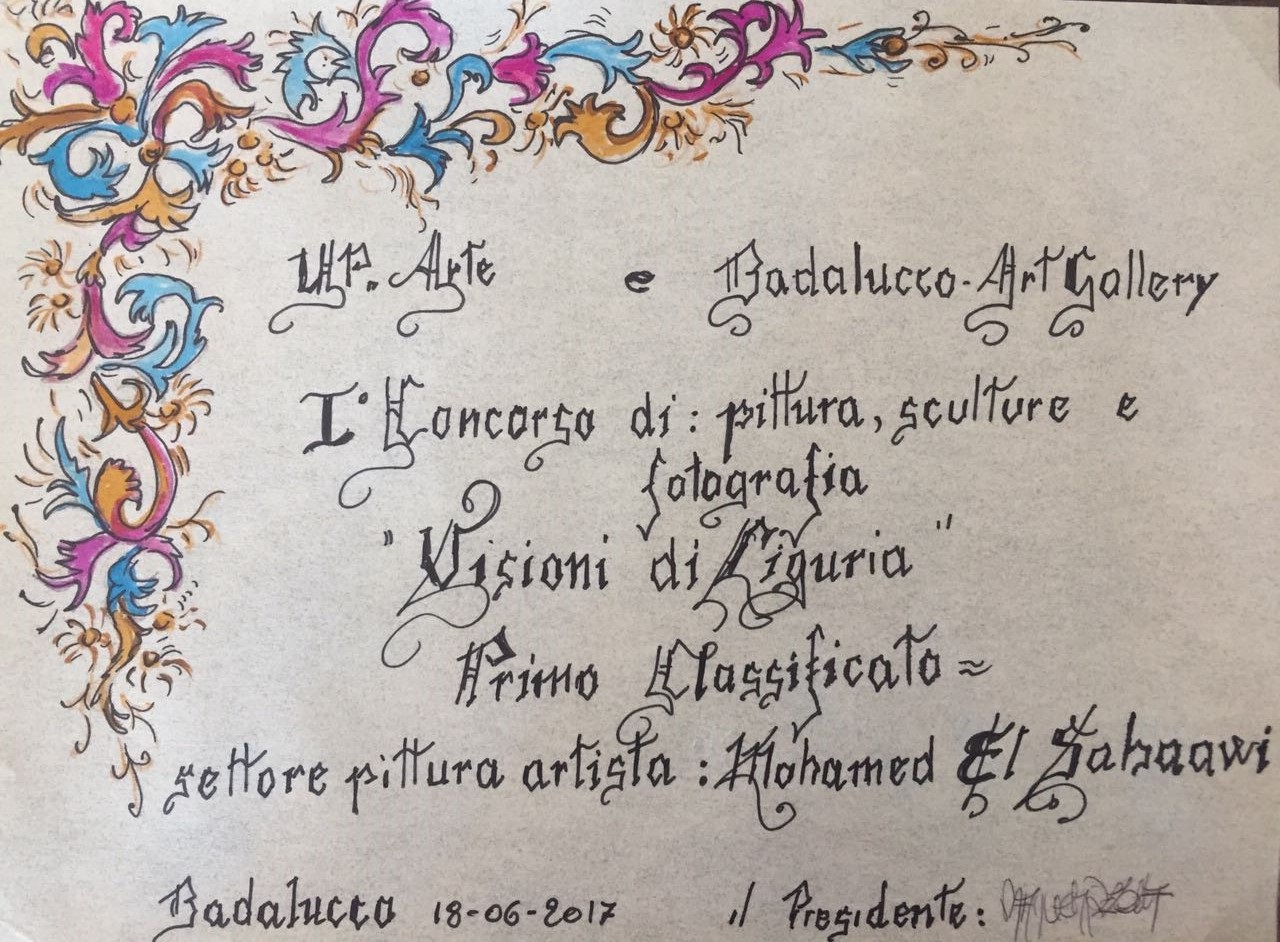 UP. Arte e Badalucco-Art Gallery
I° Concorso di: pittura, sculture e
fotografia
"Visioni di Liguria"
Primo Classificato ≈
settore pittura artista: Mohamed El Sabaawi
Badalucco 18-06-2017 il Presidente: